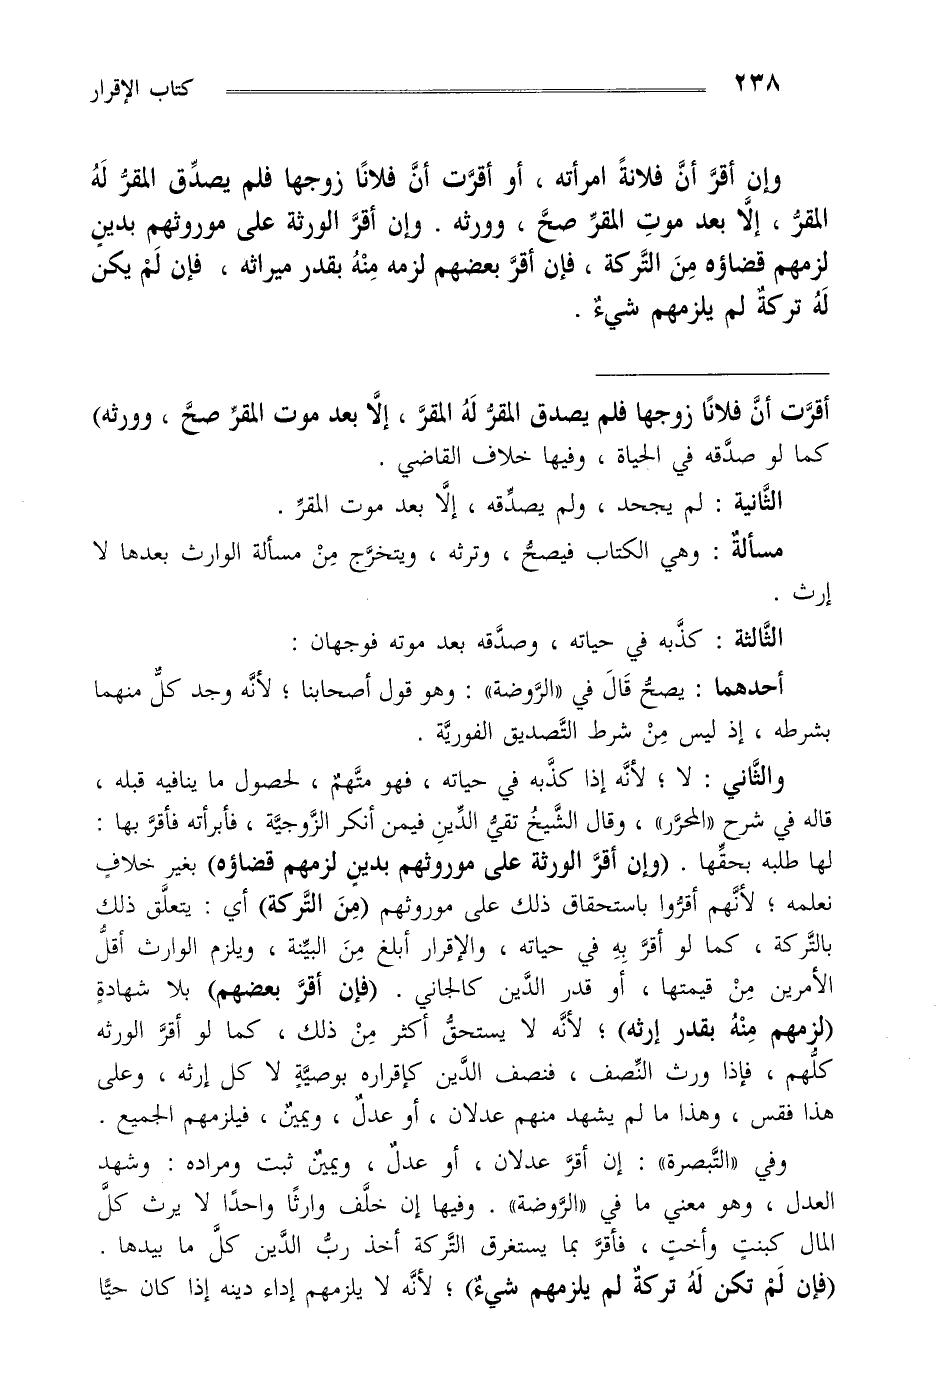 ٢٣٨ كتاب الإقرار
وإن أقرَّ أنَّ فلانةً امرأته ، أو أقرَّت أنَّ فلانًا زوجها فلم يصدِّق المقرُّ لَهُ
المقرُّ ، إلَّا بعد موتِ المقرِّ صحَّ ، وورثه . وإن أقرَّ الورثة على موروثهم بدينٍ
لزمهم قضاؤه مِنَ التَّركة ، فإن أقرَّ بعضهم لزمه مِنْهُ بقدر ميراثه ، فإن لَمْ يكن
لَهُ تركةٌ لم يلزمهم شيءٌ .
أقرَّت أنَّ فلانًا زوجها فلم يصدق المقرُّ لَهُ المقرَّ ، إلَّا بعد موت المقرِّ صحَّ ، وورثه)
كما لو صدَّقه في الحياة ، وفيها خلاف القاضي .
الثَّانية : لم يجحد ، ولم يصدِّقه ، إلَّا بعد موت المقرِّ .
مسألةٌ : وهي الكتاب فيصحُّ ، وترثه ، ويتخرَّج مِنْ مسألة الوارث بعدها لا
إرث .
الثَّالثة : كذَّبه في حياته ، وصدَّقه بعد موته فوجهان :
أحدهما : يصحُّ قَالَ في «الرَّوضة» : وهو قول أصحابنا ؛ لأنَّه وجد كلٌّ منهما
بشرطه ، إذ ليس مِنْ شرط التَّصديق الفوريَّة .
والثَّاني : لا ؛ لأنَّه إذا كذَّبه في حياته ، فهو متَّهمٌ ، لحصول ما ينافيه قبله ،
قاله في شرح «المحرَّر» ، وقال الشَّيخُ تقيُّ الدِّينِ فيمن أنكر الزَّوجيَّة ، فأبرأته فأقرَّ بها :
لها طلبه بحقِّها . (وإن أقرَّ الورثة على موروثهم بدينٍ لزمهم قضاؤه) بغير خلافٍ
نعلمه ؛ لأنَّهم أقرُّوا باستحقاق ذلك على موروثهم (مِنَ التَّركة) أي : يتعلَّق ذلك
بالتَّركة ، كما لو أقرَّ بِهِ في حياته ، والإقرار أبلغ مِنَ البيِّنة ، ويلزم الوارث أقلُّ
الأمرين مِنْ قيمتها ، أو قدر الدَّين كالجاني . (فإن أقرَّ بعضهم) بلا شهادةٍ
(لزمهم مِنْهُ بقدر إرثه) ؛ لأنَّه لا يستحقُّ أكثر مِنْ ذلك ، كما لو أقرَّ الورثه
كلُّهم ، فإذا ورث النِّصف ، فنصف الدَّين كإقراره بوصيَّةٍ لا كل إرثه ، وعلى
هذا فقس ، وهذا ما لم يشهد منهم عدلان ، أو عدلٌ ، ويمينٌ ، فيلزمهم الجميع .
وفي «التَّبصرة» : إن أقرَّ عدلان ، أو عدلٌ ، ويمينٌ ثبت ومراده : وشهد
العدل ، وهو معني ما في «الرَّوضة» . وفيها إن خلَّف وارثًا واحدًا لا يرث كلَّ
المال كبنتٍ وأختٍ ، فأقرَّ بما يستغرق التَّركة أخذ ربُّ الدَّين كلَّ ما بيدها .
(فإن لَمْ تكن لَهُ تركةٌ لم يلزمهم شيءٌ) ؛ لأنَّه لا يلزمهم إداء دينه إذا كان حيًّا